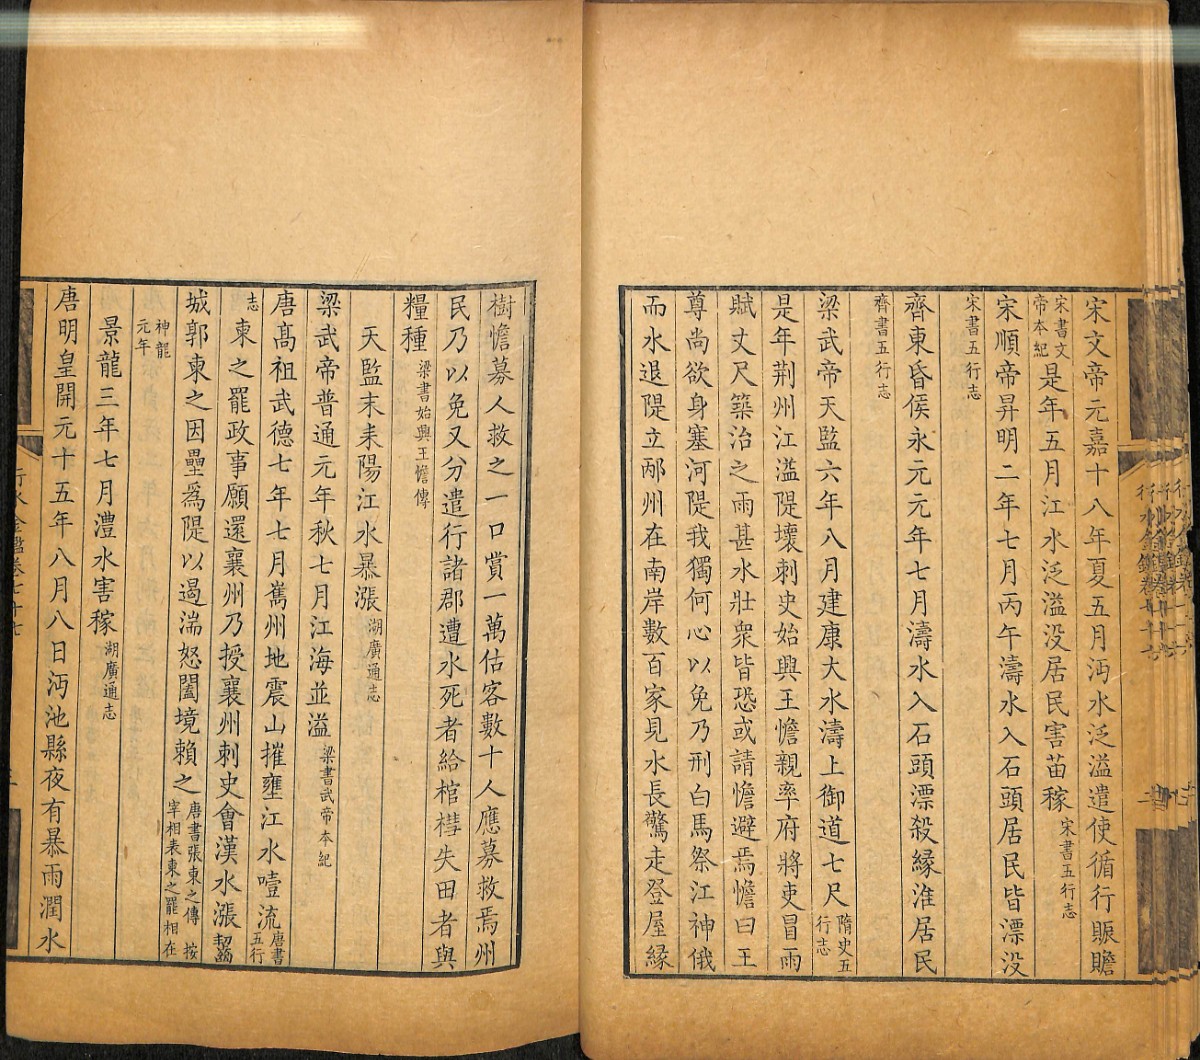 宋文帝元嘉十八年夏五月沔水泛溢遣使循行賑贍
宋書文帝本紀是年五月江水泛溢没居民害苗稼宋書五行志
宋順帝昇明二年七月丙午濤水入石頭居民皆漂没
宋書五行志
齊東昏侯永元元年七月濤水入石頭漂殺緣淮居民
齊書五行志
梁武帝天監六年八月建康大水濤上御道七尺隋史五行志
是年荆州江溢隄壞刺史始興王憺親率府將吏冒雨
賦丈尺築治之雨甚水壯衆皆恐或請憺避焉憺曰王
尊尚欲身塞河隄我獨何心以免乃刑白馬祭江神俄
而水退隄立邴州在南岸數百家見水長驚走登屋緣
樹憺募人救之一口賞一萬估客數十人應募救焉州
民乃以免又分遣行諸郡遭水死者給棺槥失田者與
糧種梁書始興王憺傳
天監末耒陽江水暴漲湖廣通志
梁武帝普通元年秋七月江海並溢梁書武帝本紀
唐高祖武德七年七月嶲州地震山摧壅江水噎流唐書五行
志柬之罷政事願還襄州乃授襄州刺史會漢水漲齧
城郭柬之因壘爲隄以遏湍怒闔境賴之唐書張柬之傳 按宰相表柬之罷相在
神龍元年
景龍三年七月澧水害稼湖廣通志
唐明皇開元十五年八月八日沔池縣夜有暴雨潤水
行水金鑑卷七十七